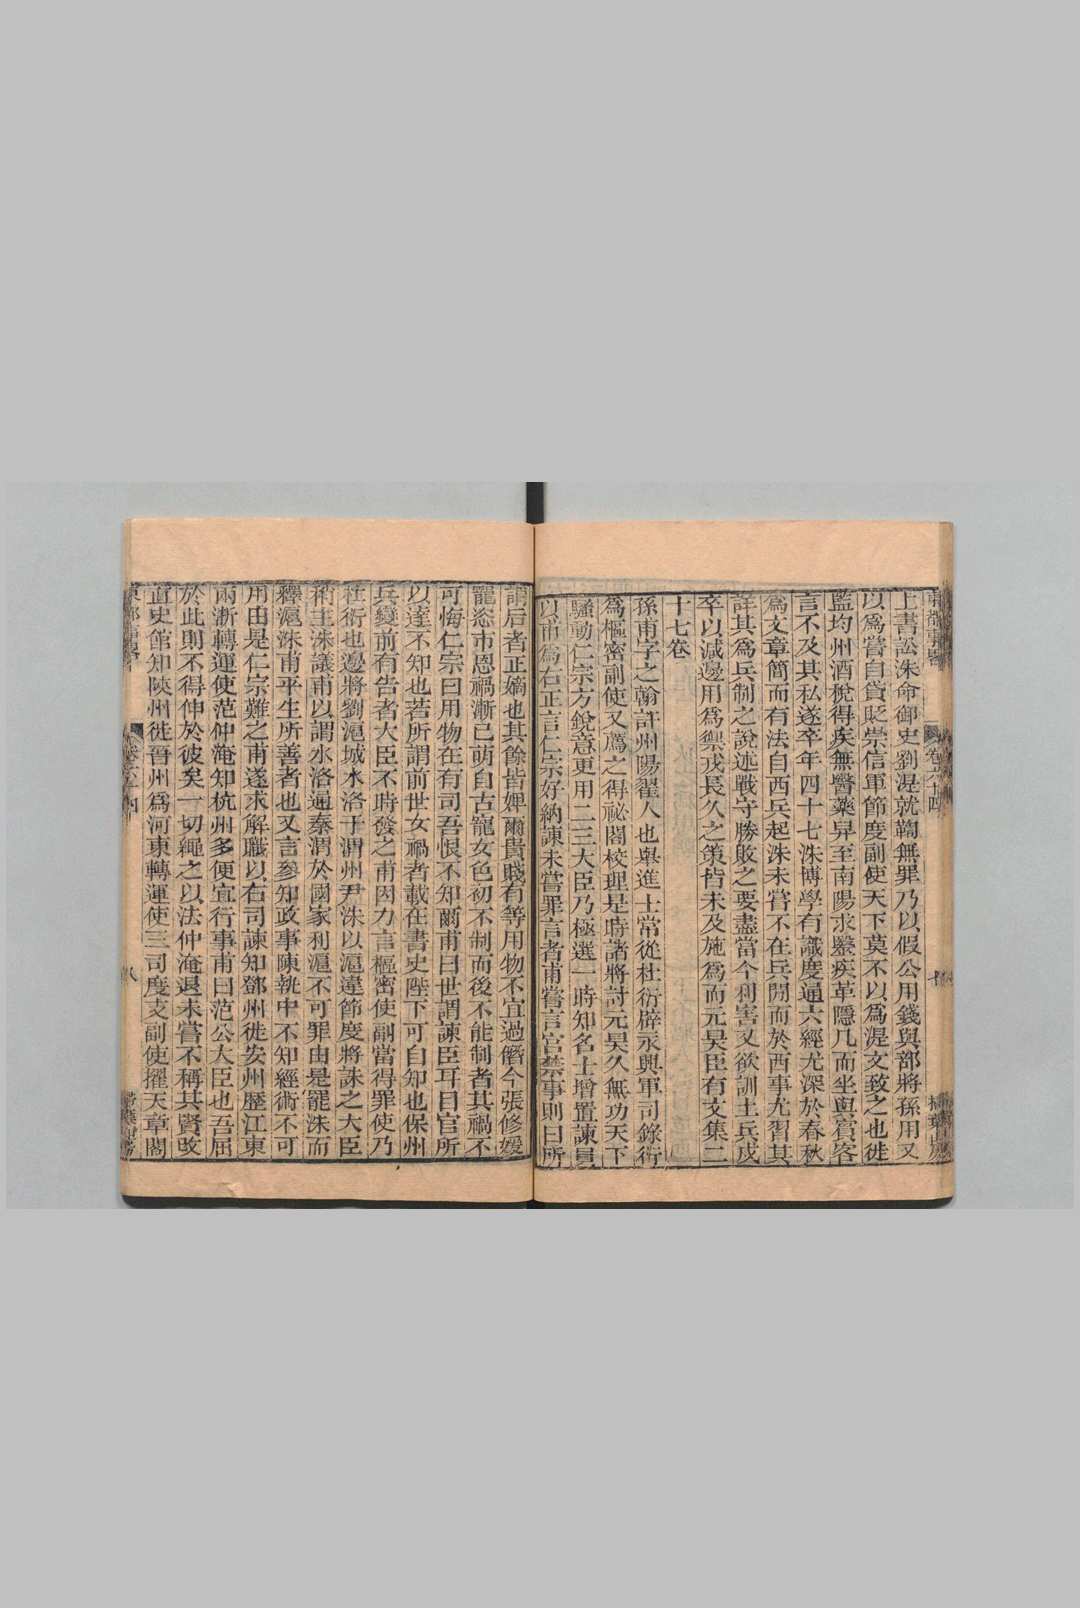 東都事略 卷六十四 掃葉山房
上書訟洙命御史劉湜就鞫無罪乃以假公用錢與部將孫用又
以爲嘗自貸貶崇信軍節度副使天下莫不以爲湜文致之也徙
監均州酒稅得疾無醫藥舁至南陽求醫疾革隱几而坐與賓客
言不及其私遂卒年四十七洙博學有識度通六經尤深於春秋
爲文章簡而有法自西兵起洙未嘗不在兵閒而於西事尤習其
詳其爲兵制之說述戰守勝敗之要盡當今利害又欲訓土兵戍
卒以減邊用爲禦戎長久之策皆未及施爲而元昊臣有文集二
十七卷
孫甫字之翰許州陽翟人也舉進士常從杜衍辟永興軍司錄衍
爲樞密副使又薦之得祕閣校理是時諸將討元昊久無功天下
騷動仁宗方銳意更用二三大臣乃極選一時知名士增置諫員
以甫爲右正言仁宗好納諫未嘗罪言者甫嘗言宮禁事則曰所
謂后者正嫡也其餘皆婢爾貴賤有等用物不宜過僭今張修媛
寵恣市恩禍漸已萌自古寵女色初不制而後不能制者其禍不
可悔仁宗曰用物在有司吾恨不知爾甫曰世謂諫臣耳目官所
以達不知也若所謂前世女禍者載在書史陛下可自知也保州
兵變前有告者大臣不時發之甫因力言樞密使副當得罪使乃
杜衍也邊將劉滬城水洛于渭州尹洙以滬違節度將誅之大臣
稍主洙議甫以謂水洛通秦渭於國家利滬不可罪由是罷洙而
釋滬洙甫平生所善者也又言參知政事陳執中不知經術不可
用由是仁宗難之甫遂求解職以右司諫知鄧州徙安州歷江東
兩浙轉運使范仲淹知杭州多便宜行事甫曰范公大臣也吾屈
於此則不得伸於彼矣一切繩之以法仲淹退未嘗不稱其賢改
直史館知陝州徙晉州爲河東轉運使三司度支副使擢天章閣
東都事略 卷六十四 八